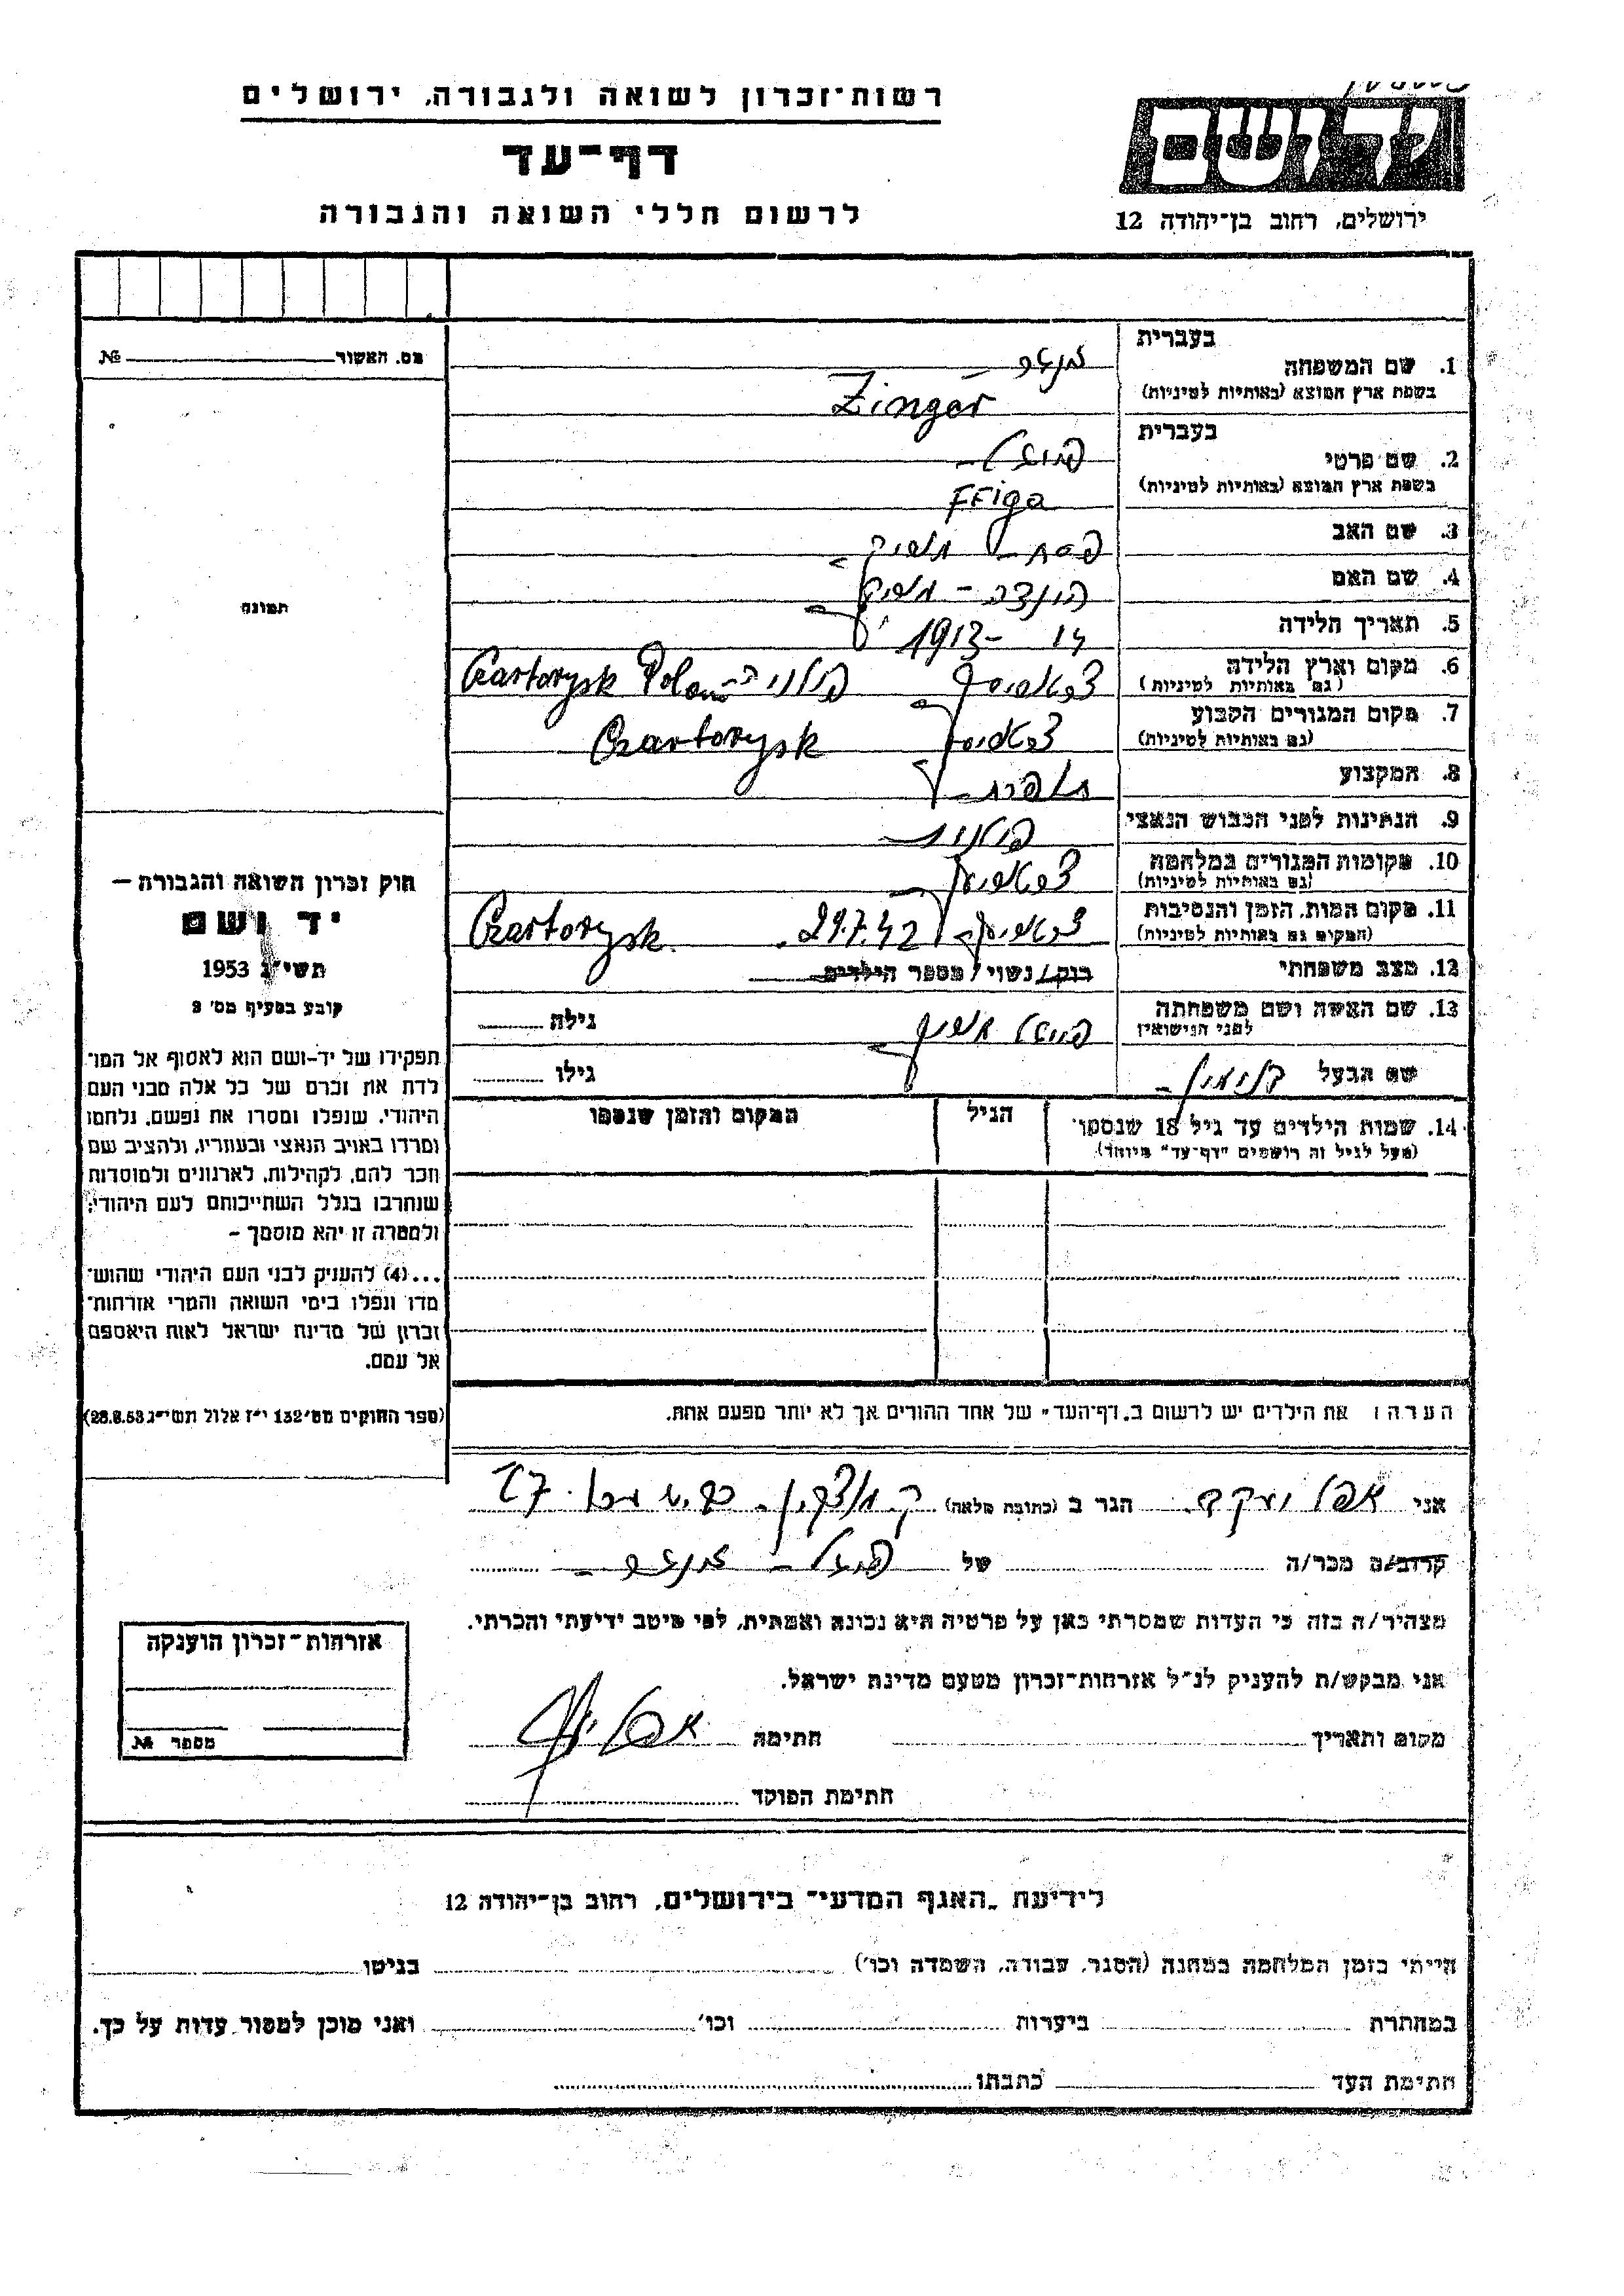 רשות־זכרון לשואה ולגבורה, ירושלים
דף־עד
לרשום חללי השואה והגבורה
יד ושם
ירושלים, רחוב בן־יהודה 12
מס. האשור № 
בעברית
1. שם המשפחה זינגר
בשפת ארץ המוצא (באותיות לטיניות) Zinger
בעברית
2. שם פרטי פייגל
בשפת ארץ המוצא (באותיות לטיניות) FEiga
3. שם האב פסח
4. שם האם
5. תאריך הלידה 1913
6. מקום וארץ הלידה Czartorysk Polan פולניה
(גם באותיות לטיניות)
7. מקום המגורים הקבוע Czartorysk
(גם באותיות לטיניות)
8. המקצוע
9. הנתינות לפני הכבוש הנאצי פולנית
10. מקומות המגורים במלחמה
(גם באותיות לטיניות)
11. מקום המות, הזמן והנסיבות 29.7.42 Czartorysk
(המקום גם באותיות לטיניות)
12. מצב משפחתי רוק/נשוי/מספר הילדים
13. שם האשה ושם משפחתה גילה
לפני הנישואין
שם הבעל בנימין גילו
14. שמות הילדים עד גיל 18 שנספו הגיל המקום והזמן שנספו
(מעל לגיל זה רושמים "דף־עד" מיוחד)
הערה: את הילדים יש לרשום ב"דף־העד" של אחד ההורים אך לא יותר מפעם אחת.
תמונה
חוק זכרון השואה והגבורה —
יד ושם
תשי"ג 1953
קובע בסעיף מס' 2
תפקידו של יד־ושם הוא לאסוף אל המו־
לדת את זכרם של כל אלה מבני העם
היהודי, שנפלו ומסרו את נפשם, נלחמו
ומרדו באויב הנאצי ובעוזריו, ולהציב שם
וזכר להם, לקהילות, לארגונים ולמוסדות
שנחרבו בגלל השתייכותם לעם היהודי;
ולמטרה זו יהא מוסמך —
...(4) להעניק לבני העם היהודי שהוש־
מדו ונפלו בימי השואה והמרי אזרחות־
זכרון של מדינת ישראל לאות היאספם
אל עמם.
(ספר החוקים מס' 132 י"ז אלול תשי"ג 28.8.53)
אני אפל יעקב הגר ב (כתובת מלאה) ק. מוצקין
קרוב/ה מכר/ה של פייגל זינגר
מצהיר/ה בזה כי העדות שמסרתי כאן על פרטיה היא נכונה ואמתית, לפי מיטב ידיעתי והכרתי.
אני מבקש/ת להעניק לנ"ל אזרחות־זכרון מטעם מדינת ישראל.
מקום ותאריך חתימה
חתימת הפוקד
אזרחות־זכרון הוענקה
מספר №
לידיעת "האגף המדעי" בירושלים, רחוב בן־יהודה 12
הייתי בזמן המלחמה במחנה (הסגר, עבודה, השמדה וכו') בגיטו
במחתרת ביערות וכו' ואני מוכן למסור עדות על כך.
חתימת העד כתבתו